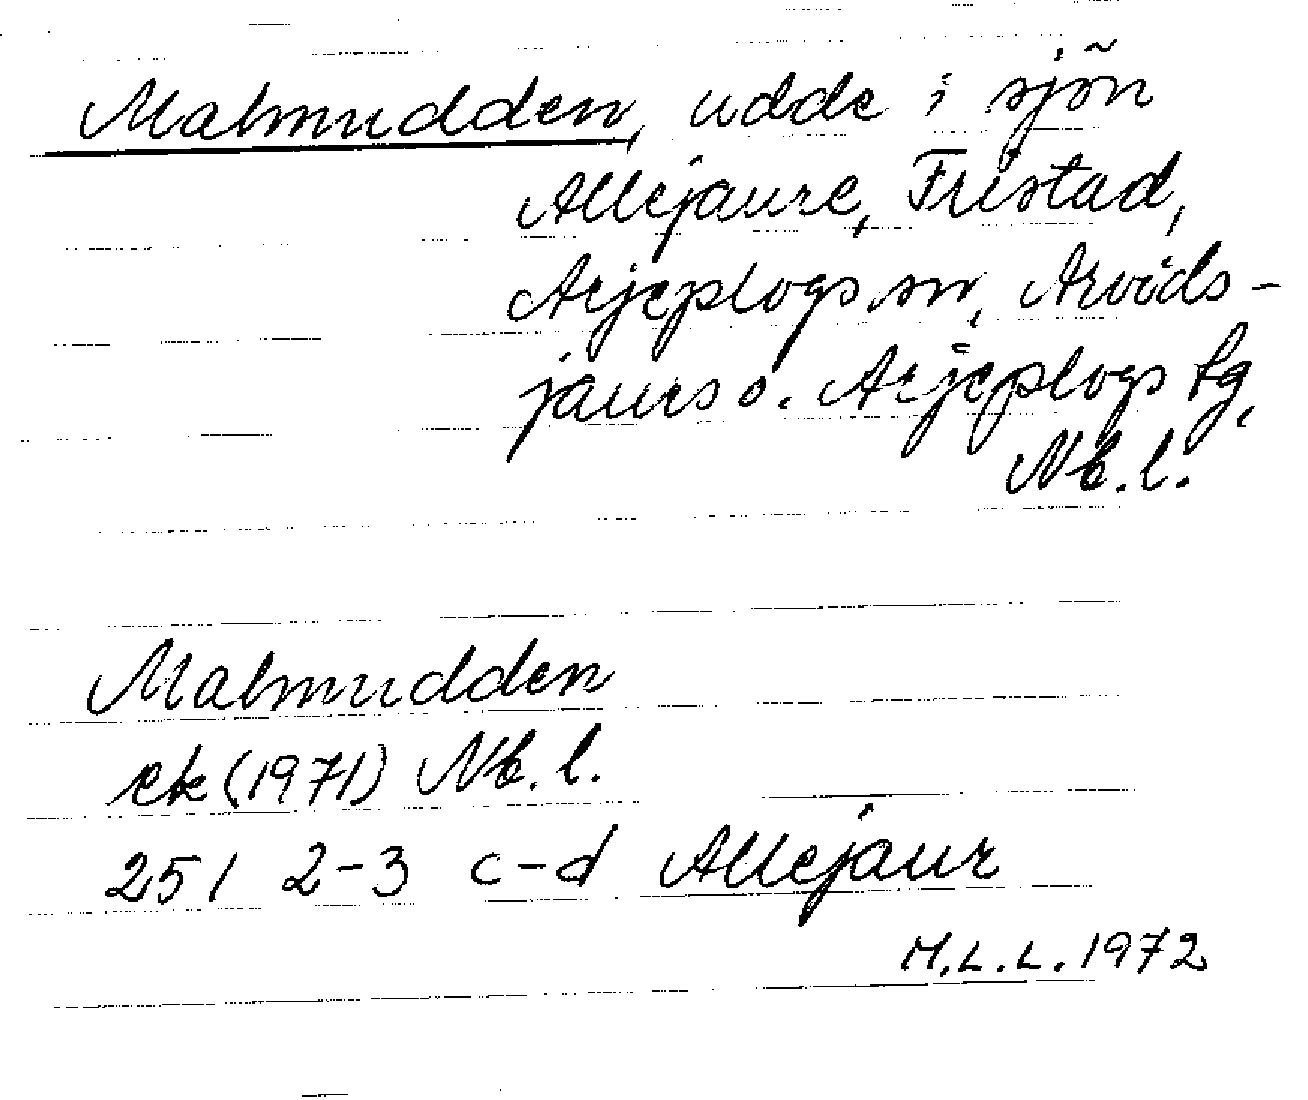 Malmudden, udde i sjön
Allejaure, Fristad,
Arjeplogs sn, Arvids-
jaurs o. Arjeplogs tg,
Nb. l.
Malmudden
ek (1971) Nb. l.
25 I 2-3 c-d Allejaur
M.L.L. 1972